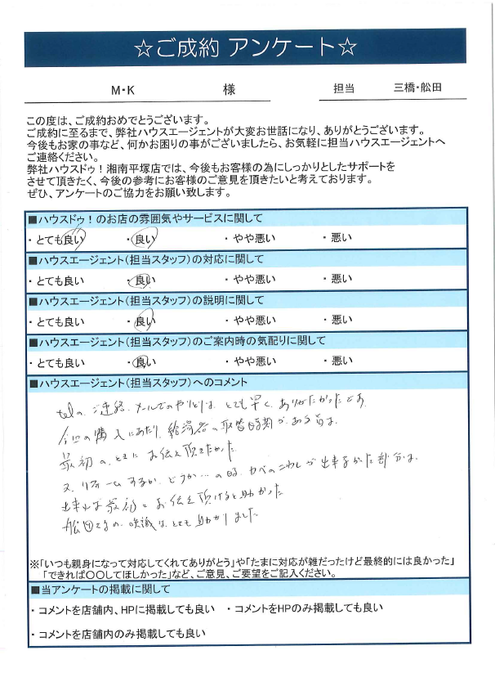 ☆ご成約 アンケート☆
M・K 様 担当 三橋・舩田
この度は、ご成約おめでとうございます。
ご成約に至るまで、弊社ハウスエージェントが大変お世話になり、ありがとうございます。
今後もお家の事など、何かお困りの事がございましたら、お気軽に担当ハウスエージェントへ
ご連絡ください。
弊社ハウスドゥ！湘南平塚店では、今後もお客様の為にしっかりとしたサポートを
させて頂きたく、今後の参考にお客様のご意見を頂きたいと考えております。
ぜひ、アンケートのご協力をお願い致します。
■ハウスドゥ！のお店の雰囲気やサービスに関して
・とても良い ・良い ・やや悪い ・悪い
■ハウスエージェント（担当スタッフ）の対応に関して
・とても良い ・良い ・やや悪い ・悪い
■ハウスエージェント（担当スタッフ）の説明に関して
・とても良い ・良い ・やや悪い ・悪い
■ハウスエージェント（担当スタッフ）のご案内時の気配りに関して
・とても良い ・良い ・やや悪い ・悪い
■ハウスエージェント（担当スタッフ）へのコメント
telの、ご連絡、メールでのやりとりは、とても早く、ありがたかったです
今回の購入にあたり、給湯器の取替時期がある旨は、
最初の、ときに お伝え頂きたかった
又、リフォームするか、どうか…の時、カベの が出来なかった部分は、
出来れば最初に お伝え頂けると助かった
舩田さまの、知識は、とても助かりました
※「いつも親身になって対応してくれてありがとう」や「たまに対応が雑だったけど最終的には良かった」
「できれば〇〇してほしかった」など、ご意見、ご要望をご記入ください。
■当アンケートの掲載に関して
・コメントを店舗内、HPに掲載しても良い ・コメントをHPのみ掲載しても良い
・コメントを店舗内のみ掲載しても良い